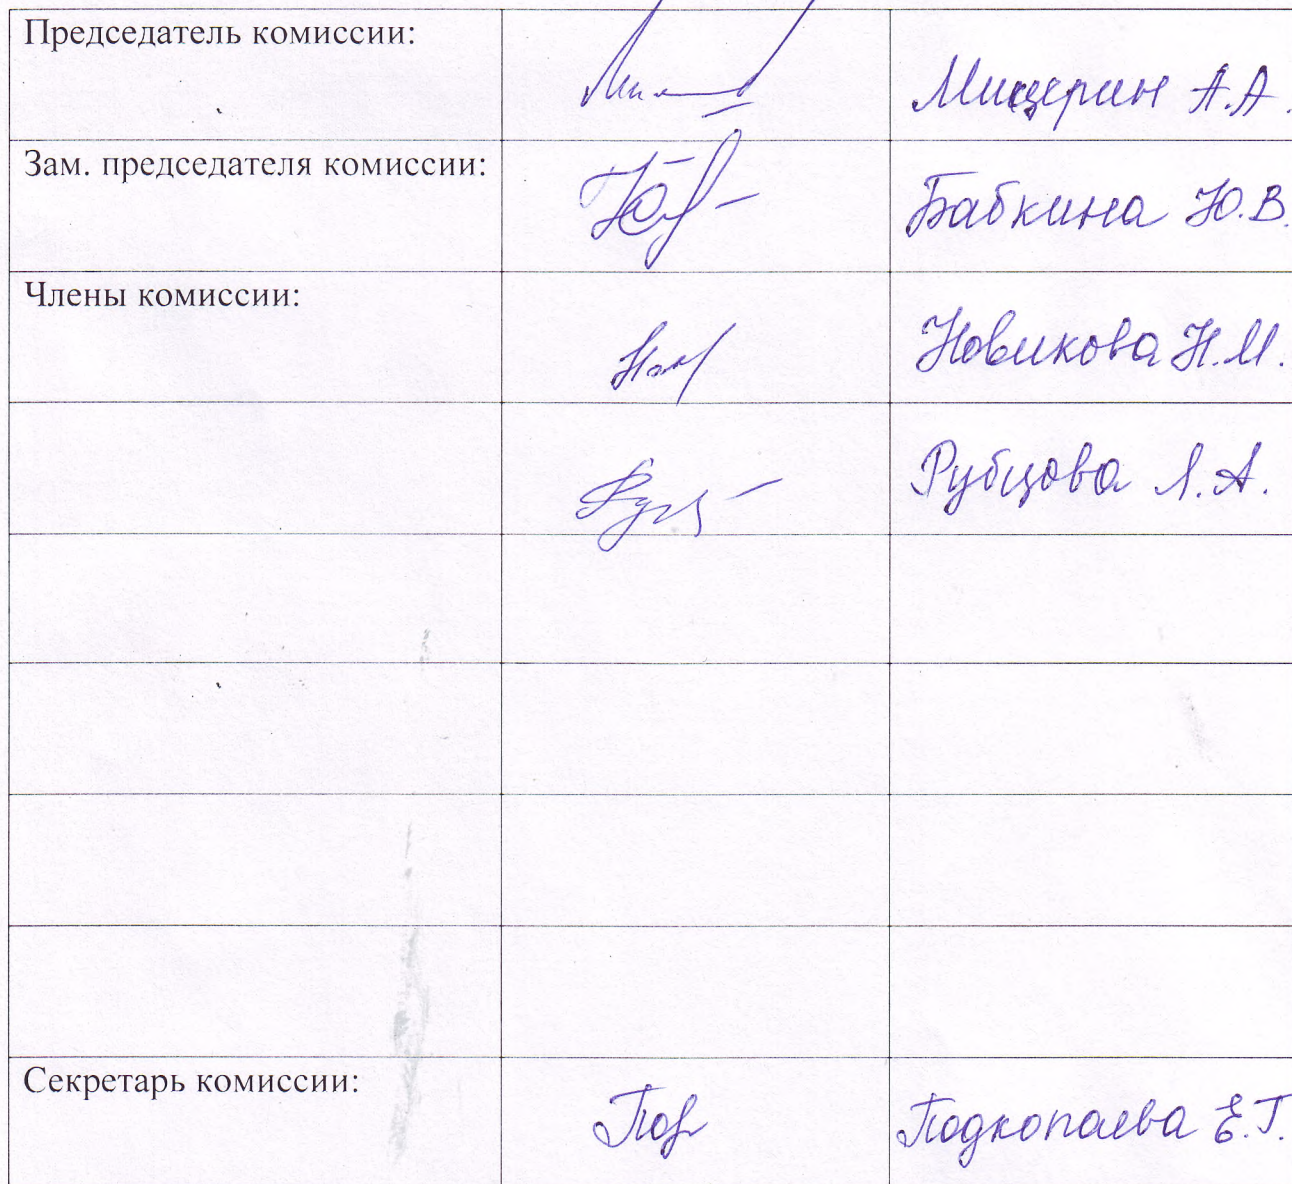 Председатель комиссии:
Мицерин А.А.
Зам. председателя комиссии:
Бабкина Ю.В.
Члены комиссии:
Новикова Н.М.
Рубцова Л.А.
Секретарь комиссии:
Подкопаева Е.Г.